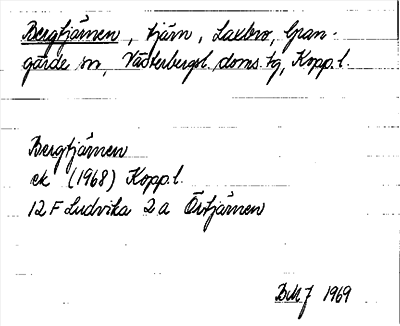 Bergtjärnen, tjärn, Laxbro, Gran-
gärde sn, Västerbergsl. doms. tg, Kopp. l.
Bergtjärnen
ek (1968) Kopp. l.
12 F Ludvika 2 a Örtjärnen
BMJ 1969